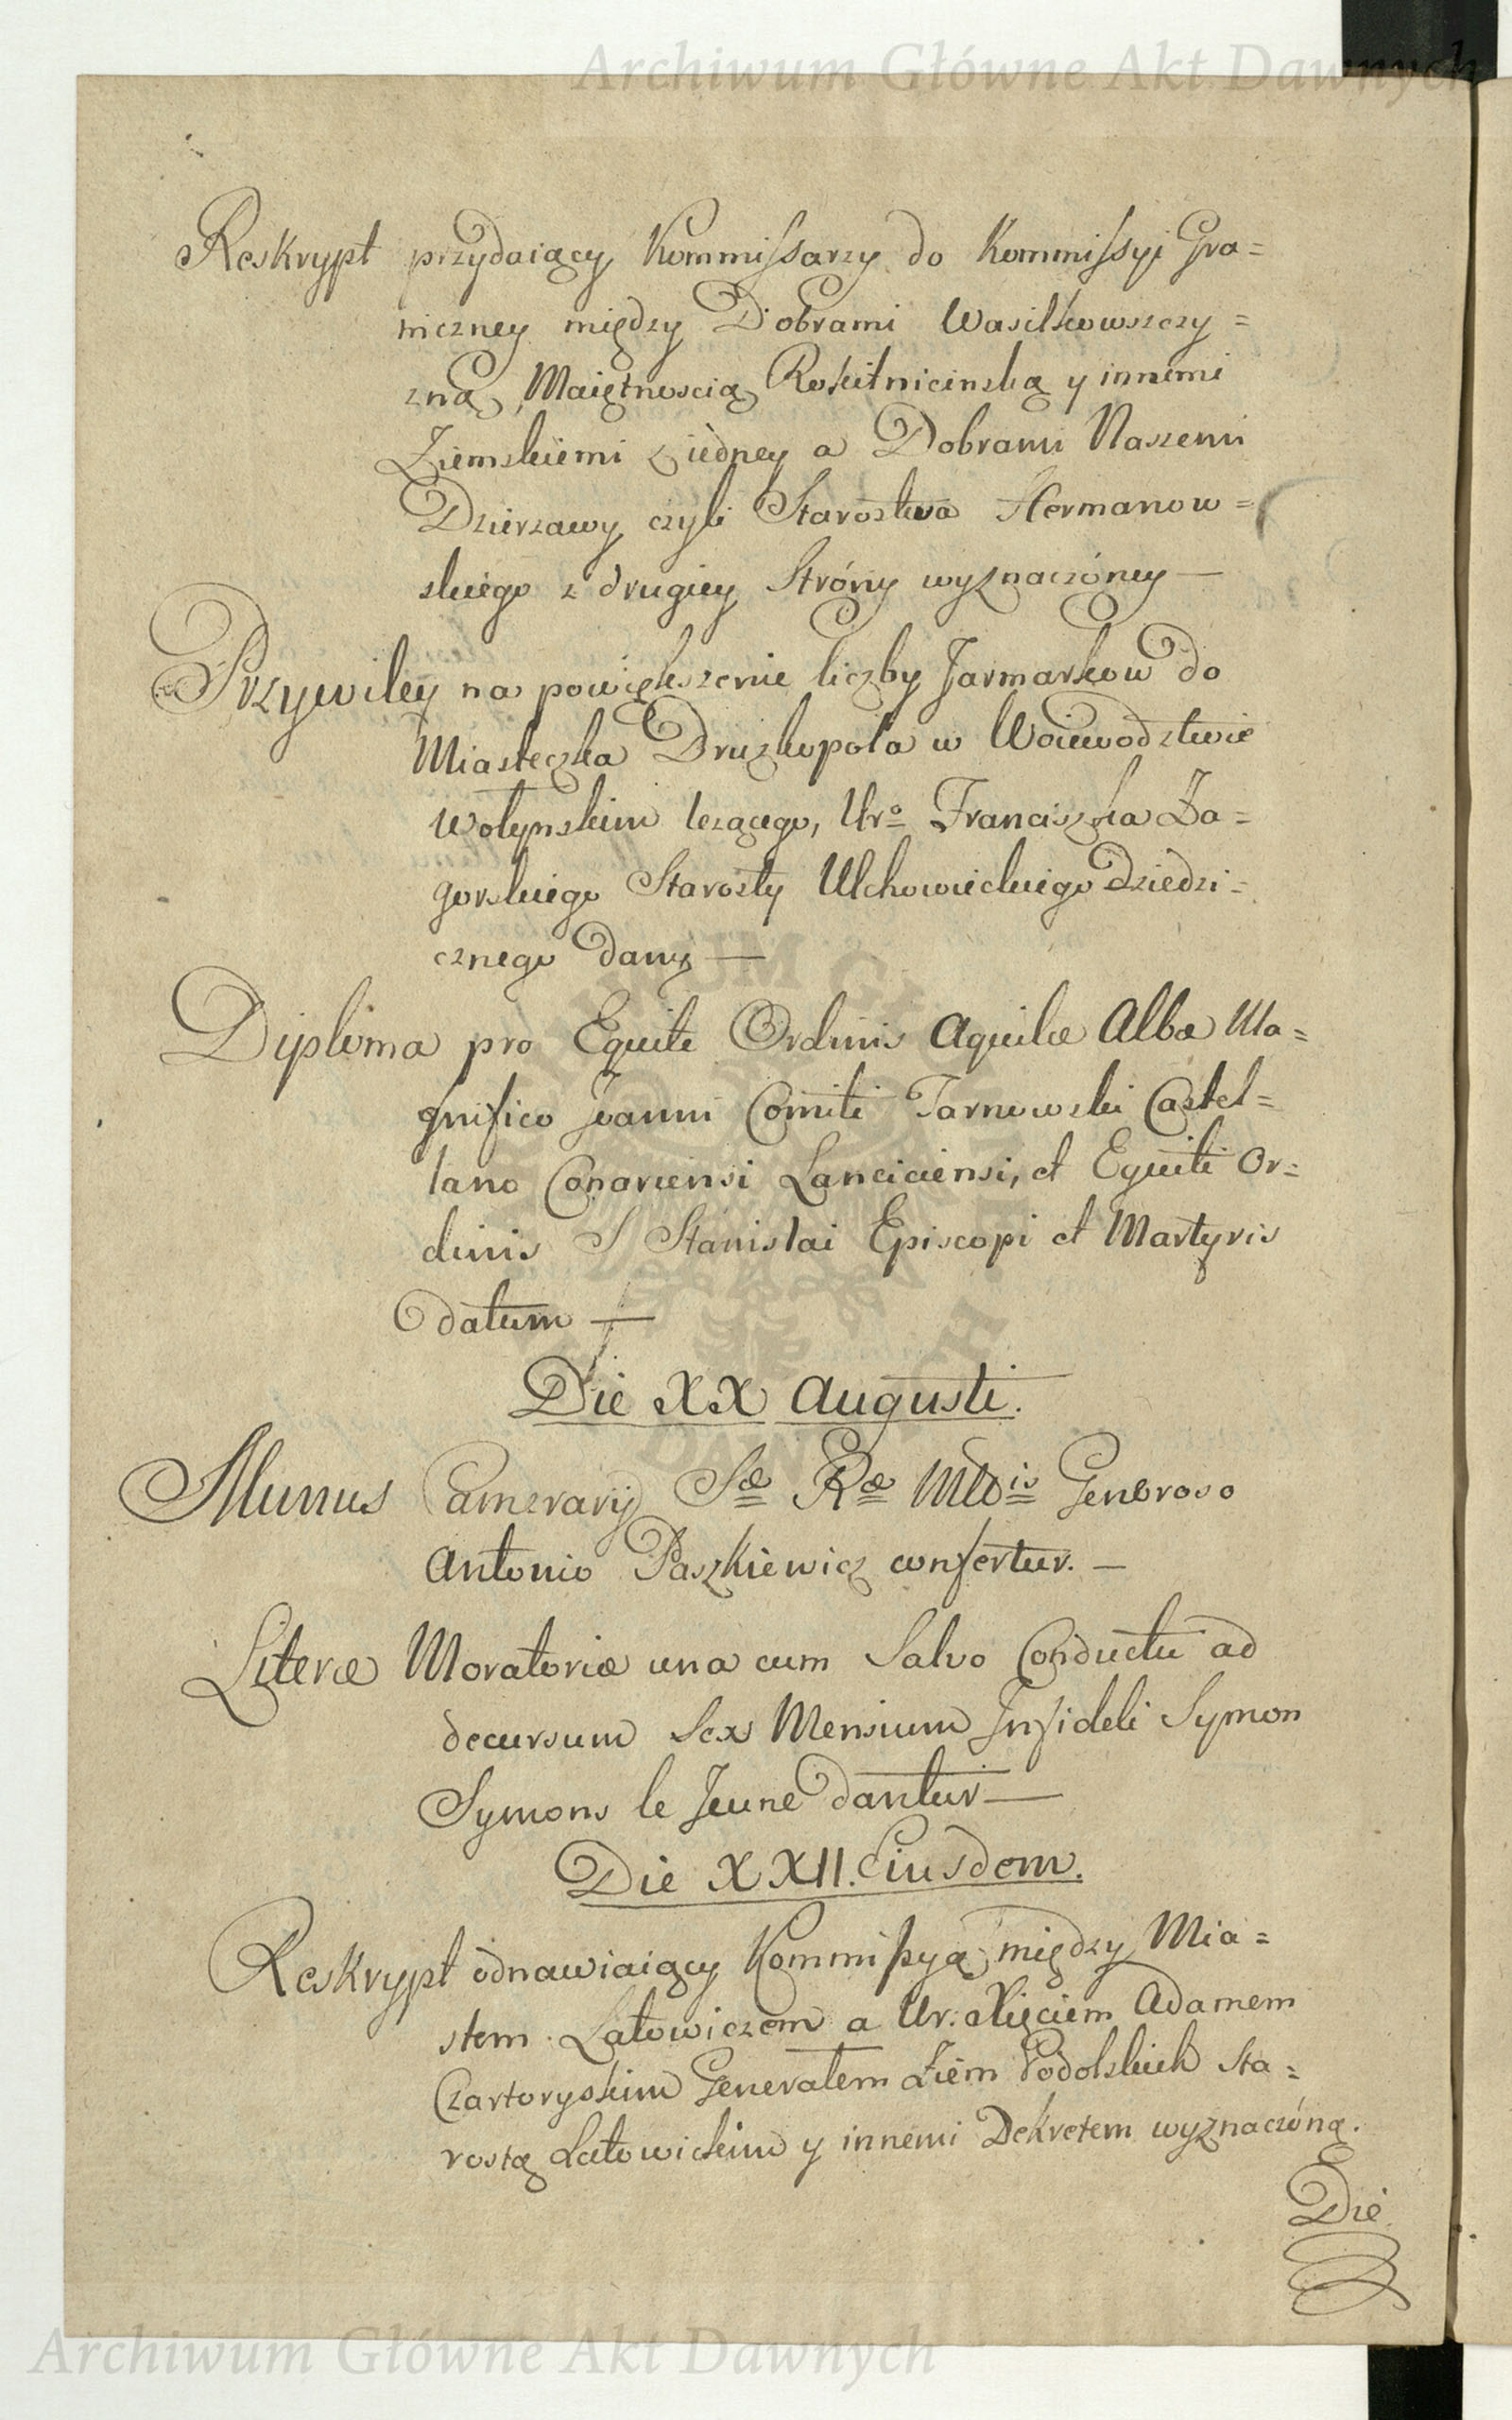 Archiwum Główne Akt Dawnych
Reskrypt przydaiący Kommissarzy do Kommissyi Gra=
niczney między Dobrami Wasilkowszczy=
zną, Maiętnoscią Rokitnicinską y innemi
Ziemskiemi z iedney a Dobrami Naszemi
Dzierzawy czyli Starostwa Hermanow=
skiego z drugiey Stróny wyznaczóney —
Przywiley na powiększenie liczby Jarmarkow do
Miasteczka Druzkopola w Woiewodztwie
Wołynskim lezącego, Uro Franciszka Za=
gorskiego Starosty Ulchowieckiego Dziedzi=
cznego dany —
Diploma pro Equite Ordinis Aquilæ Albæ Ma=
gnifico Joanni Comiti Tarnowski Castel=
lano Conariensi Lanciciensi, et Equiti Or=
dinis S Stanislai Episcopi et Martyris
datum —
Die XX Augusti.
Munus Camerarij Sæ Ræ Mttis Generoso
Antonio Paszkiewicz confertur. —
Literæ Moratoriæ una cum Salvo Conductu ad
decursum Sex Mensium Infideli Symon
Symons le Jeune dantur —
Die XXII. Eiusdem.
Reskrypt odnawiaiący Kommissyą między Mia=
stem Latowiczem a Ur. Xięciem Adamem
Czartoryskim Generałem Ziem Podolskich Sta=
rostą Latowickim y innemi Dekretem wyznaczóną.
Die
Archiwum Główne Akt Dawnych